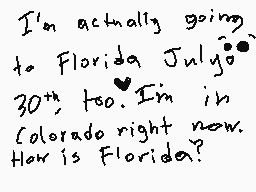 I'm actually going
to Florida July
30th, too. I'm in
Colorado right now.
How is Florida?